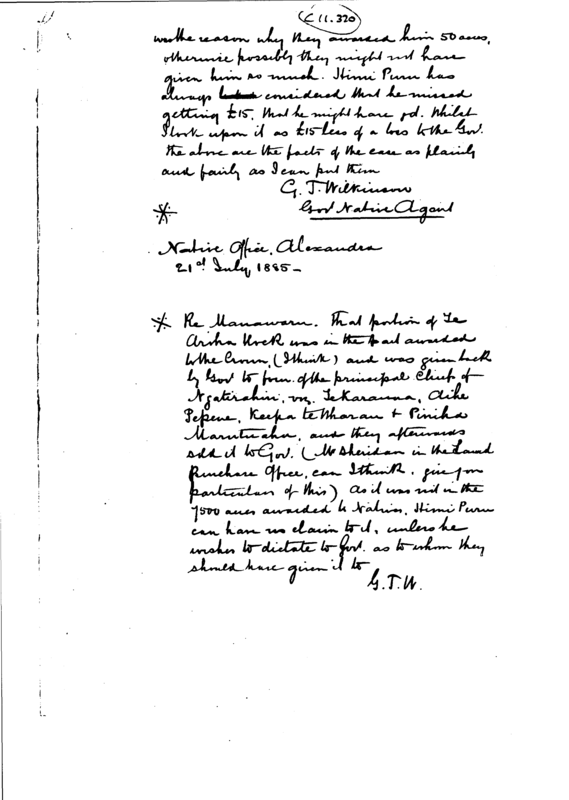 C 11.320
was the reason why they awarded him 50 acres,
otherwise possibly they might not have
given him as much. Himi Puru has
always considered that he missed
getting £15, that he might have rd. Whilst
I look upon it as £15 less of a loss to the Gov.
The above are the facts of the case as plainly
and fairly as I can put them
G. T. Wilkinson
Gov Native Agent
Native Office, Alexandra
21st July 1885 -
Re Manawaru. That portion of Te
Aroha Block was in the part awarded
to the Crown, (I think) and was given back
by Gov to four of the principal Chiefs of
viz, Te Karauna,
Pepene, Keepa te Wharau + Piniha
Marutuahu, and they afterwards
sold it to Gov. (Mr Sheridan in the Land
Purchase Office, can I think, give you
particulars of this) As it was not in the
7500 acres awarded to Natives, Himi Puru
can have no claim to it, unless he
wishes to dictate to Gov. as to whom they
should have given it to
G. T. W.